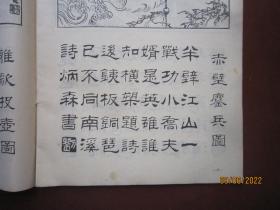 赤壁鏖兵圖
半壁江山一
戰功小喬夫
婿是英雄誰
知橫槊題詩
後鐵板銅琶
已不同南溪
詩炳森書
雅歌投壺圖